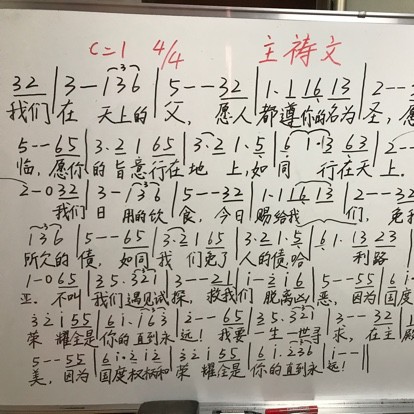 C=1 4/4 主祷文
32 | 3 — 136 | 5 - - 32 | 1·1 16 13 | 2 - -
我们 在 天上的 父, 愿人 都遵你的名为 圣, 愿
5 - - 65 | 3·2 1 65 | 3·2 1·5 | 6 1·3 63 | 2 -
临, 愿你 的 旨意 行在 地 上, 如 同 行在天上.
2 - 0 32 | 3 - 136 | 5 - - 32 | 1·1 16 13 | 2 - - 32
我们 日 用的饮 食, 今日 赐给我 们, 免我
136 | 5 - - 65 | 3·2 1 65 | 3·2 1·5 | 6 1·13 23
所欠的 债, 如同 我 们免了 人的债 利路
1 - 0 65 | 35·321 | 3 - - 21 | i - 2 i6 | 5 - - 55 | 6 i·
亚. 不叫 我们遇见试 探, 救我 们 脱离凶 恶, 因为 国度
32 i 55 | 6 i·i63 | 2 - - 65 | 35·321 | 3 - - 32 |
荣 耀全是 你的直到永 远! 我要 一生一世寻 求, 在主 殿
5 - - 55 | 6 i·2 i2 | 32 i 55 | 6 i·236 | i - - ||
美, 因为 国度权柄和 荣 耀全是 你的直到永 远!